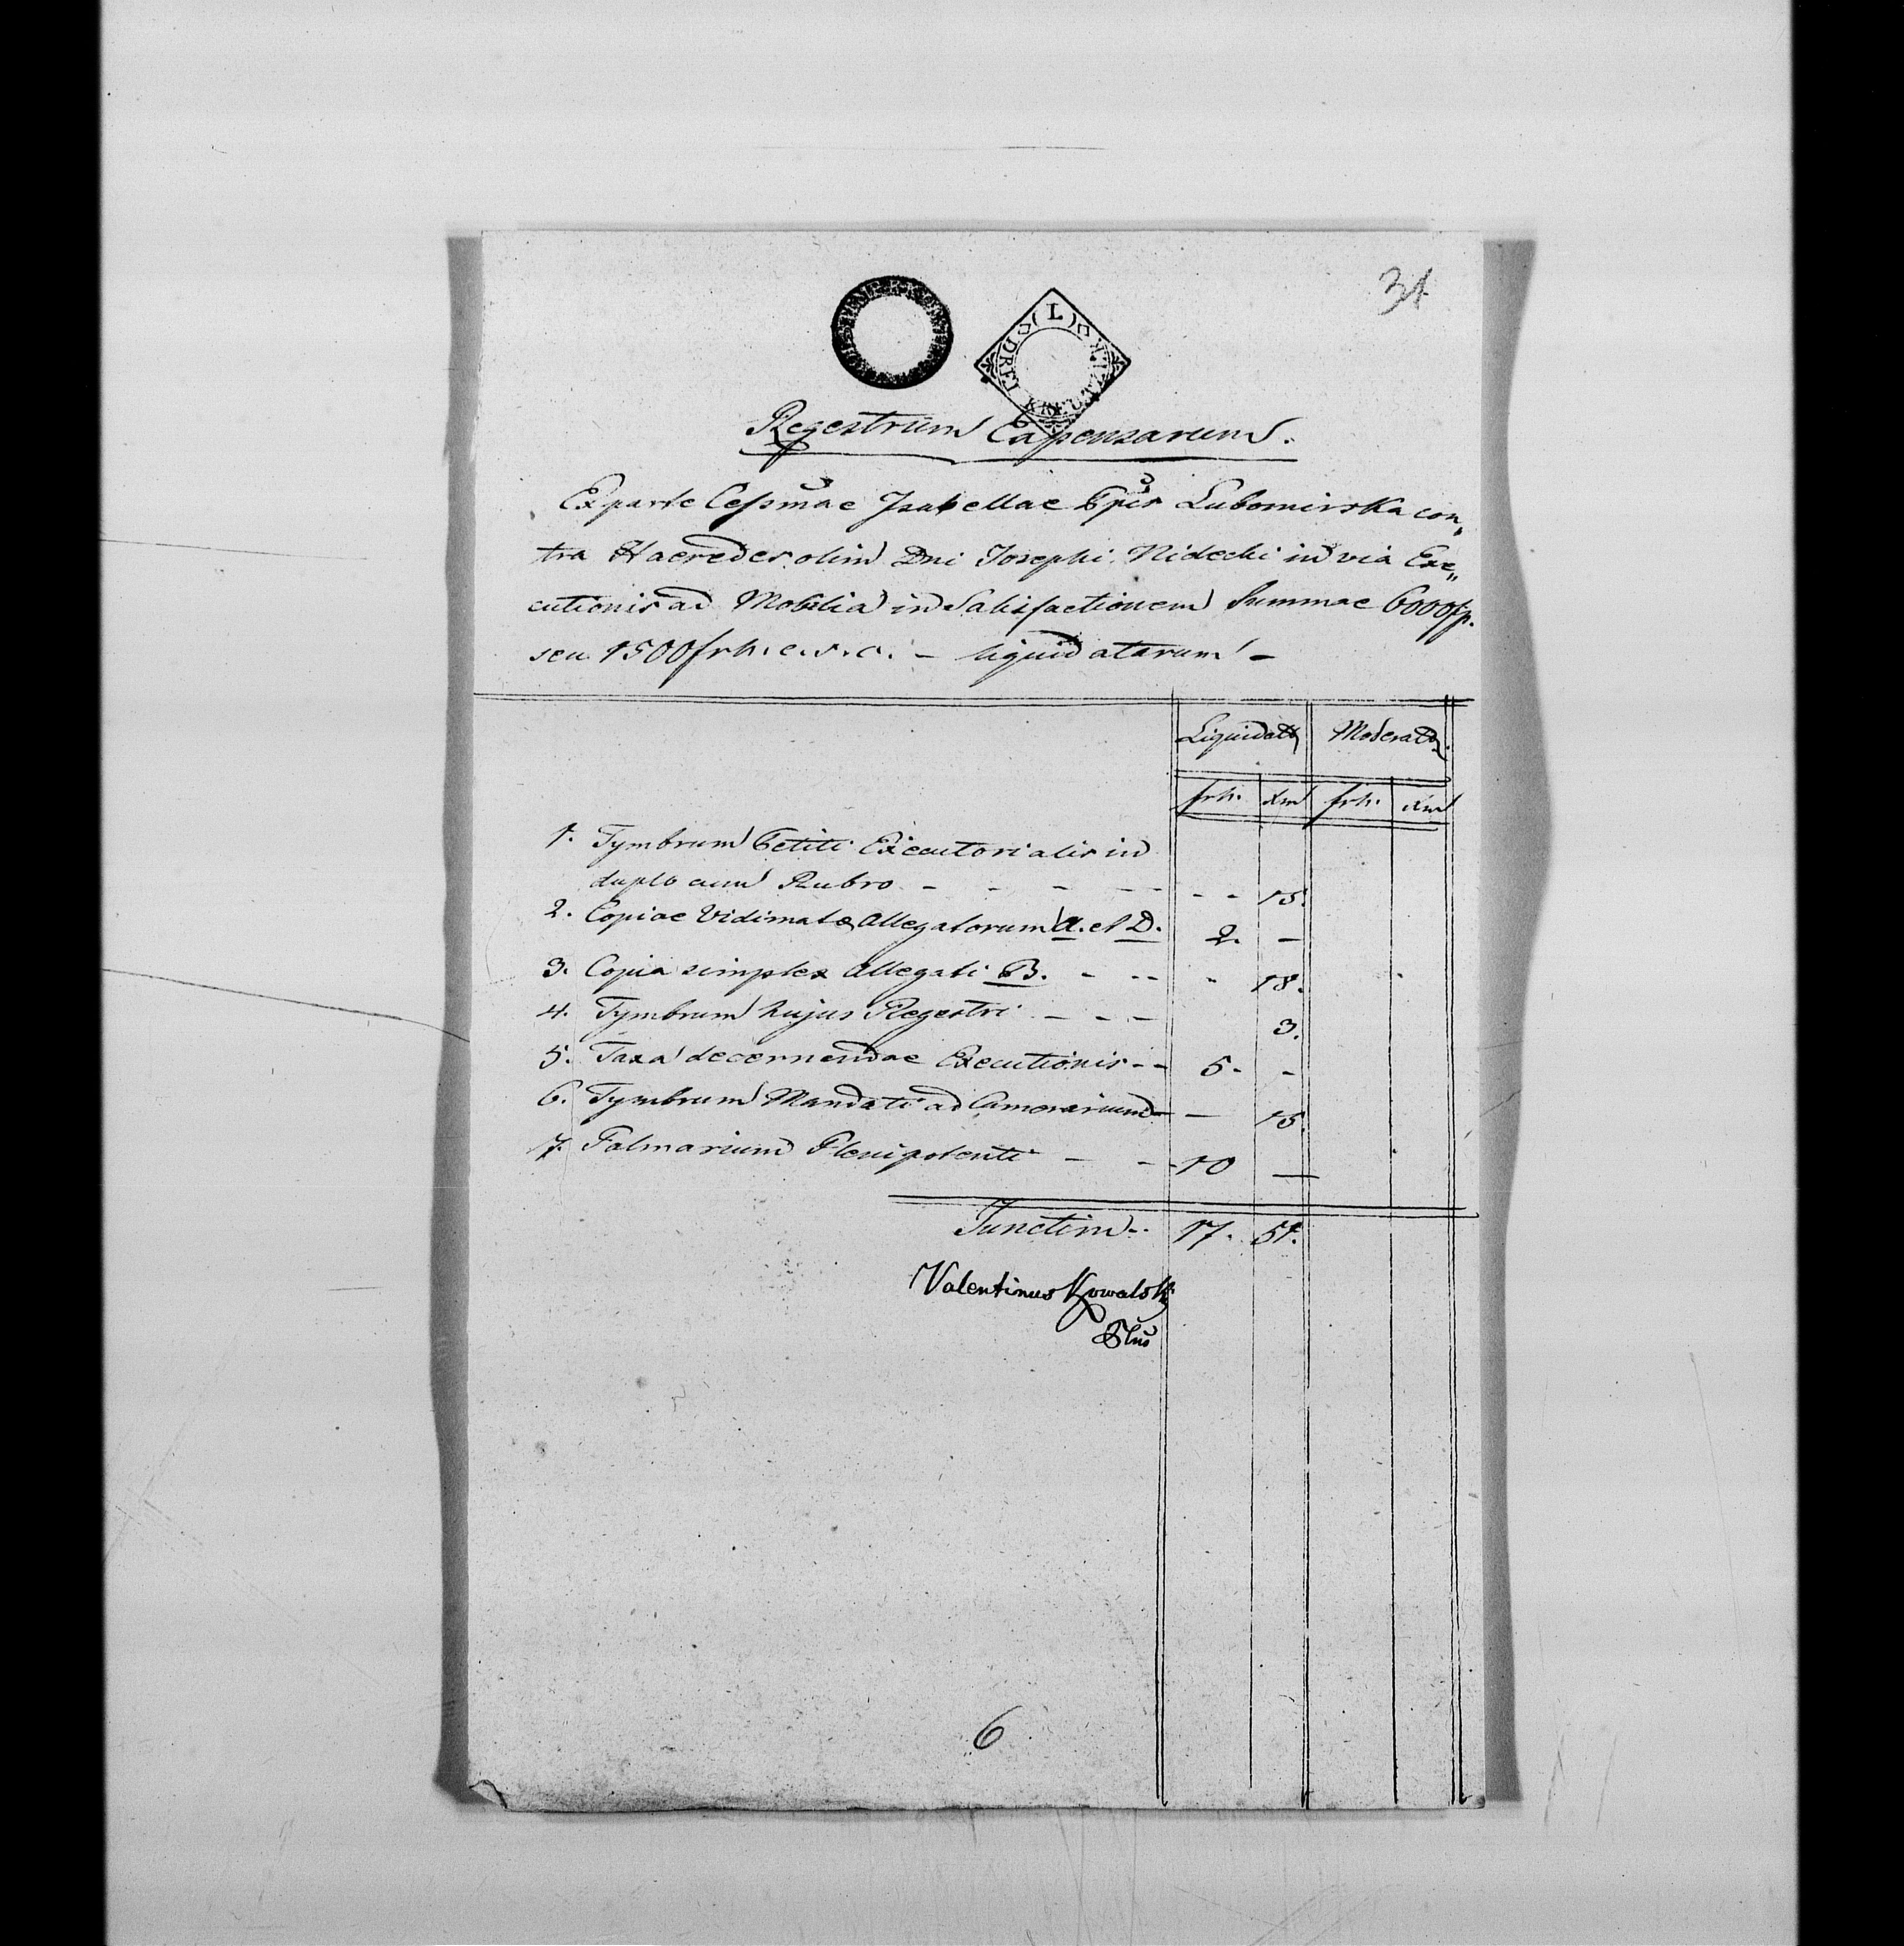 31.
Regestrum Expensarum.
Ex parte Celsmae Isabellae Ppis Lubomirska con„
tra Haeredes olim Dni Josephi Nidecki in via Exe„
cutionis ad Mobilia in Satisfactionem Summae 6000 fp.
seu 1500 frh. c. s. c. – liquidatarum –
Liquidat Moderat
frh. xm frh. xm
1. Tymbrum Petiti Executorialis in
duplo cum Rubro - - - - - - 15.
2. Copiae Vidimatae Allegatorum A. et D. 2. –
3. Copia simplex Allegati B. - - - - 18.
4. Tymbrum hujus Regestri - - - 3.
5. Taxa decernendae Executionis - - 5. -
6. Tymbrum Mandati ad Camerarium - – 15.
7. Palmarium Plenipotenti - - - 10 —
Junctim - - 17. 51.
Valentinus Kowalski
6